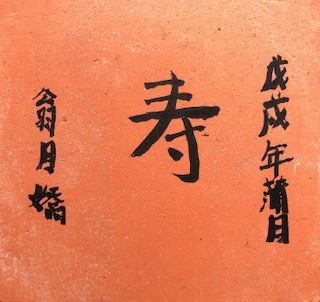 戊戌年蒲月
寿
翁月嬌